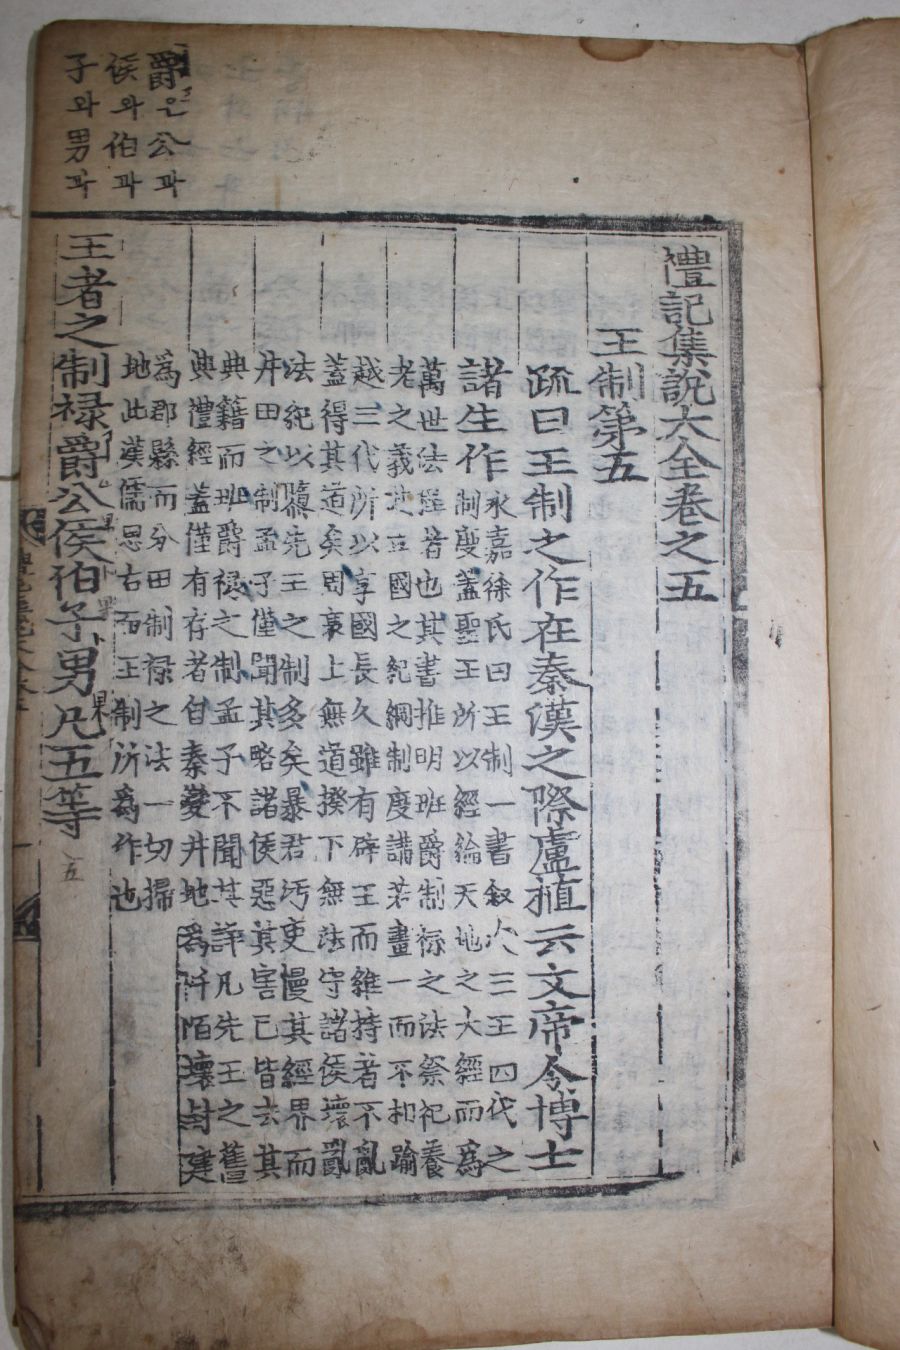 爵은公과
侯와伯과
子와男과
禮記集說大全卷之五
王制第五
疏曰王制之作在秦漢之際盧植云文帝令博士
諸生作
永嘉徐氏曰王制一書叙次三王四代之
制度盖聖王所以經綸天地之大經而爲
萬世法程者也其書推明班爵制祿之法祭祀養
老之義其立國之紀綱制度講若畫一而不相踰
越三代所以享國長久雖有辟王而維持者不亂
蓋得其道矣周衰上無道揆下無法守諸侯壞亂
法紀以隳先王之制多矣暴君汚吏慢其經界而
井田之制孟子僅聞其略諸侯惡其害已皆去其
典籍而班爵祿之制孟子不聞其詳凡先王之舊
典禮經蓋僅有存者自秦變井地爲阡陌壞封建
爲郡縣而分田制祿之法一切掃
地此漢儒思古而王制所爲作也
王者之制祿爵公侯伯子男凡五等
五